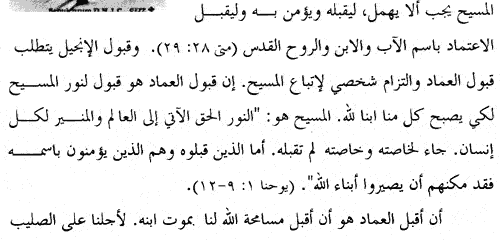 المسيح يجب ألا يهمل، ليقبله ويؤمن به وليقبل
الاعتماد باسم الآب والابن والروح القدس (متى ٢٨: ٢٩). وقبول الإنجيل يتطلب
قبول العماد والتزام شخصي لإتباع المسيح. إن قبول العماد هو قبول لنور المسيح
لكي يصبح كل منا ابنا لله. المسيح هو: "النور الحق الآتي إلى العالم والمنير لكل
إنسان. جاء لخاصته وخاصته لم تقبله. أما الذين قبلوه وهم الذين يؤمنون باسمه
فقد مكنهم أن يصيروا أبناء الله". (يوحنا ١: ٩-١٢).
أن أقبل العماد هو أن أقبل مسامحة الله لنا بموت ابنه. لأجلنا على الصليب